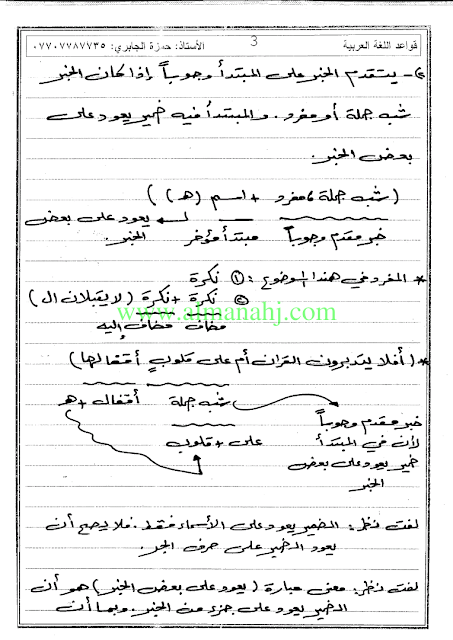 قواعد اللغة العربية 3 الأستاذ: حمزة الجابري: ٠٧٧٠٧٧٨٧٧٣٥
٢- يتقدم الخبر على المبتدأ وجوباً إذا كان الخبر
شبه جملة أو مفرد. والمبتدأ فيه ضمير يعود على
بعض الخبر.
(شبه جملة، مفرد + اسم (هـ))
يعود على بعض
خبر مقدم وجوباً مبتدأ مؤخر الخبر.
* المفرد في هذا الموضوع: ① نكرة
② نكرة + نكرة (لا يقبلان ال)
www.almanahj.com
مضاف مضاف إليه
* (أفلا يتدبرون القرآن أم على قلوبٍ أقفالها)
شبه جملة أقفال + هـ
خبر مقدم وجوباً
لأن في المبتدأ على + قلوب
ضمير يعود على بعض
الخبر
لفت نظر: الضمير يعود على الأسماء فقط. فلا يصح أن
يعود الضمير على حرف الجر.
لفت نظر: معنى عبارة (يعود على بعض الخبر) هو أن
الضمير يعود على جزء من الخبر. وبما أن